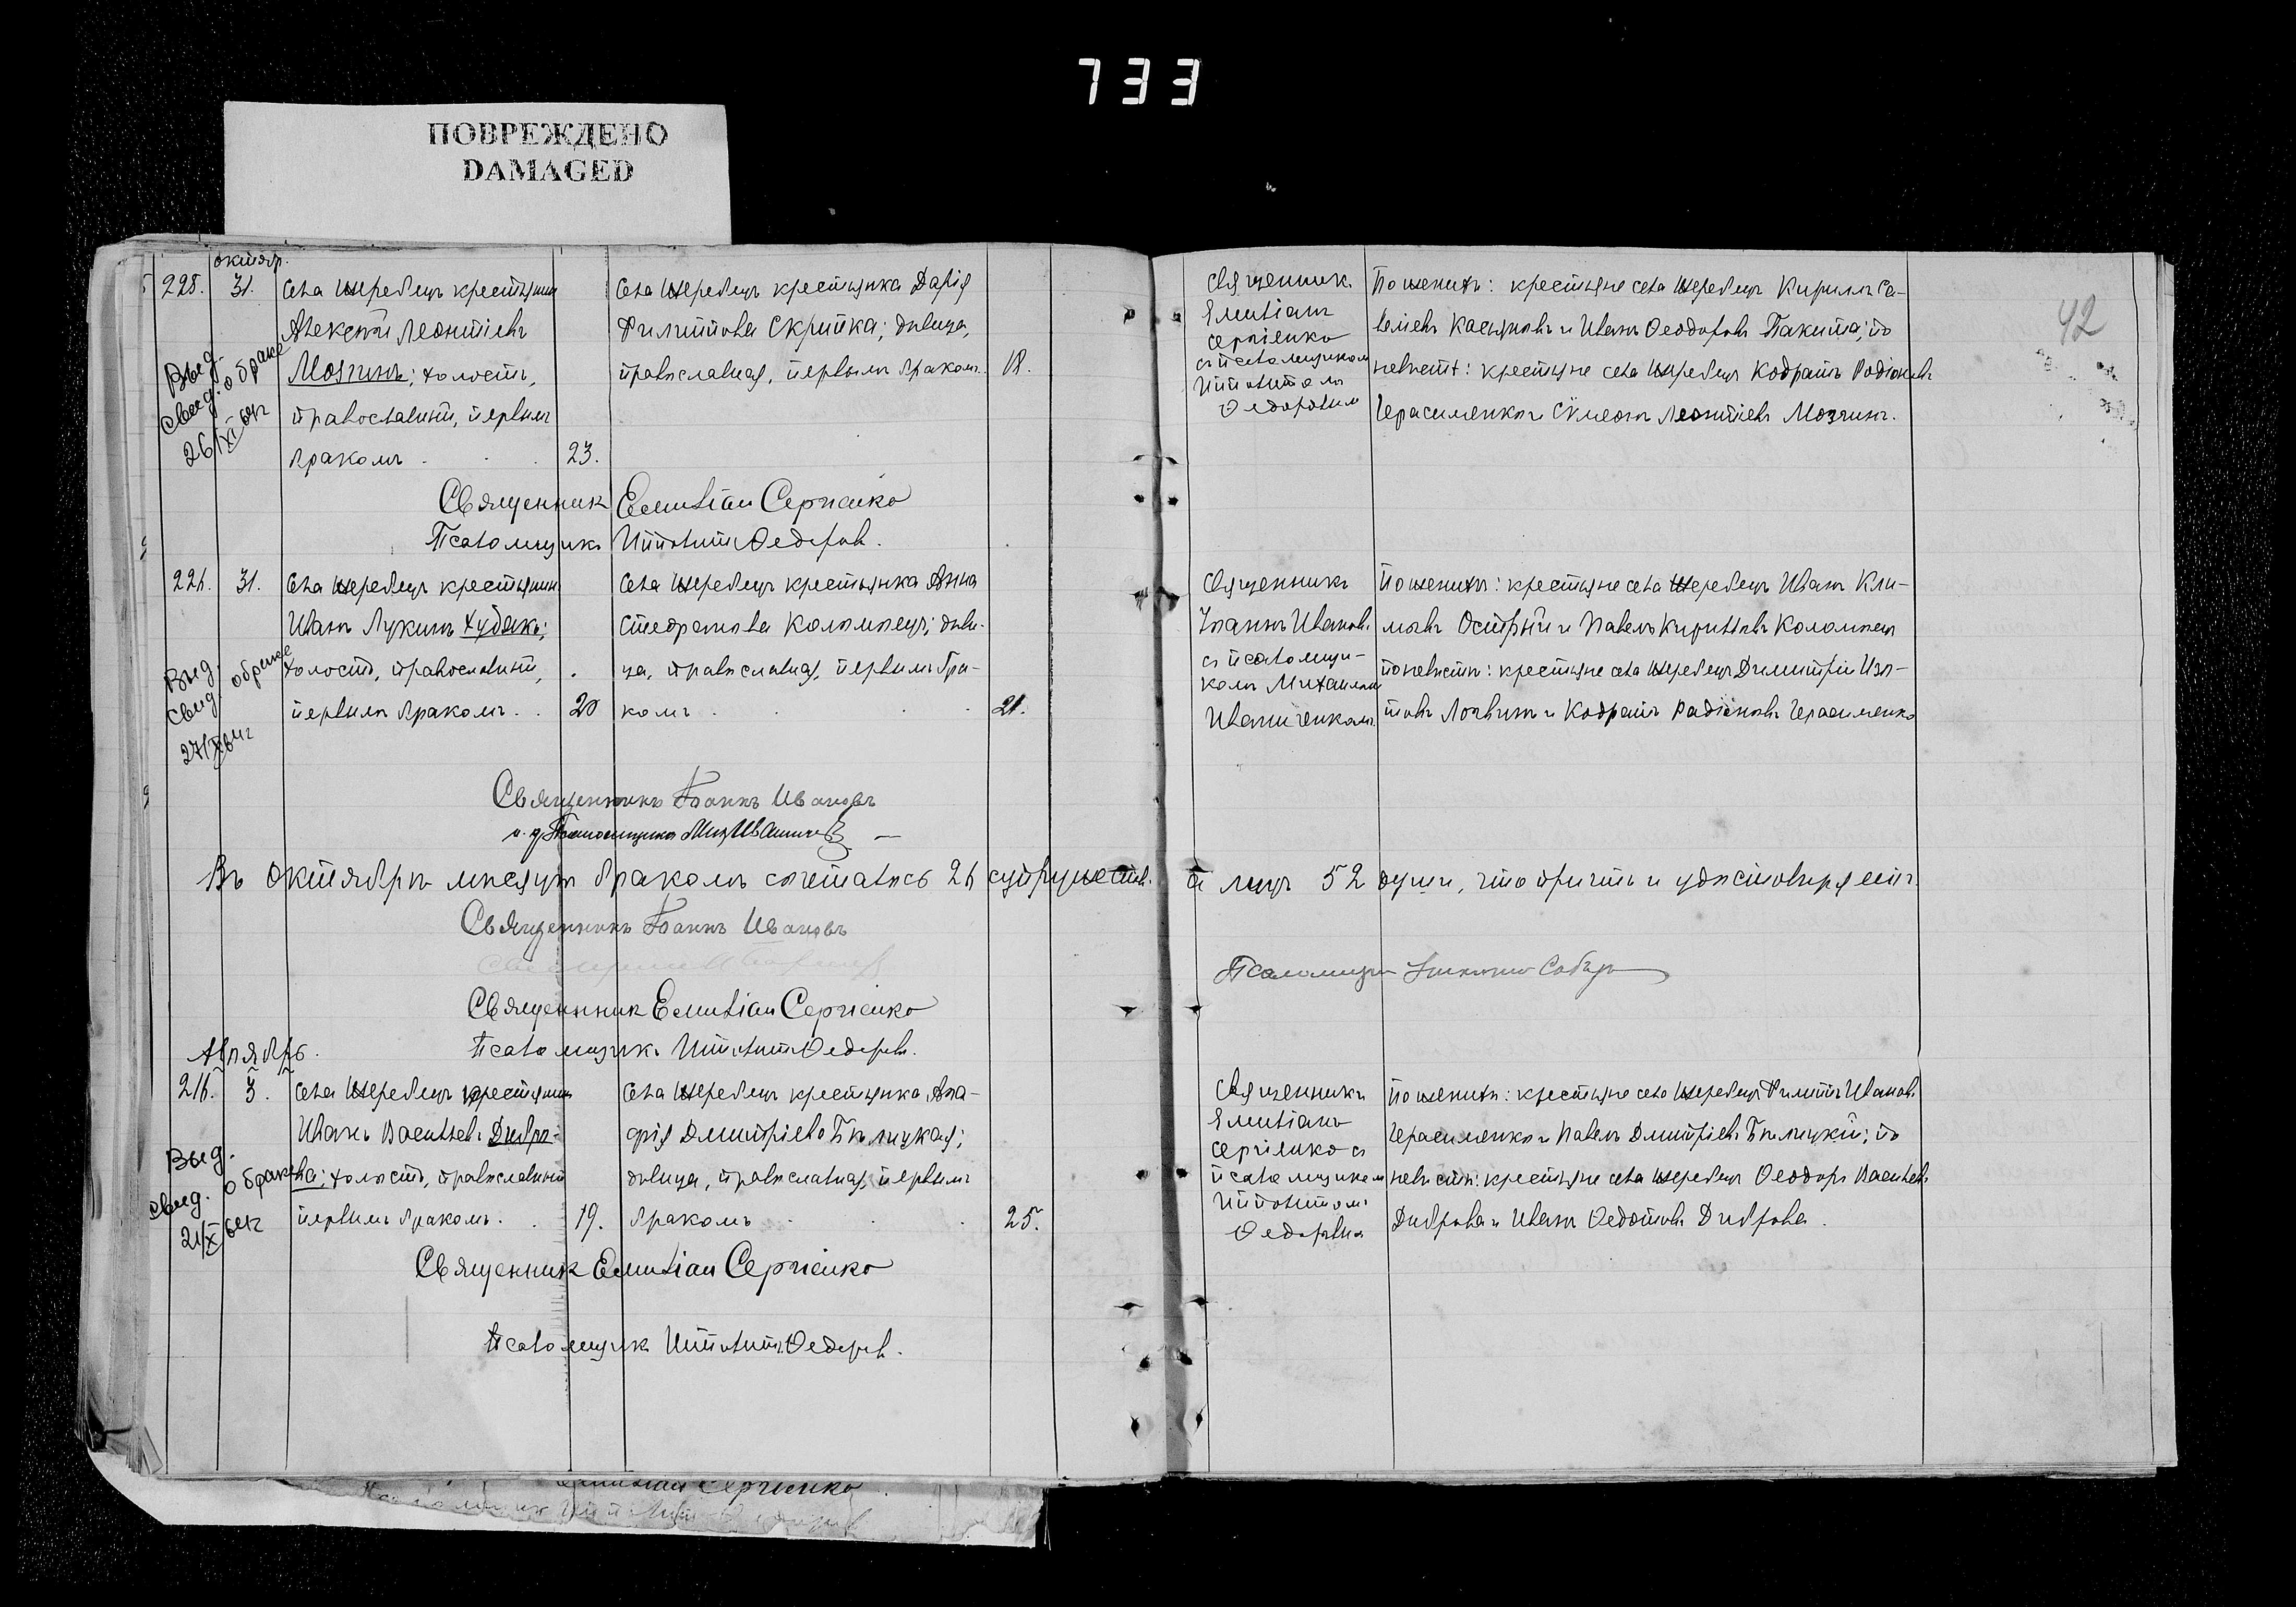 733
ПОВРЕЖДЕНО
DAMAGED
42
октябр.
31.
Села Жеребецъ крестьянинъ
Алексѣй Леонтіевъ
Мозгинъ; холостъ,
православный, первымъ
бракомъ . . . 23.
Села Жеребецъ крестьянка Дарія
Филиппова Скрипка; дѣвица,
православная, первымъ бракомъ. 18.
Священникъ
Емиліанъ
Сергіенко
съ псаломщикомъ
Ипполитомъ
Ѳедоровымъ
По женихѣ: крестьяне села Жеребецъ Кириллъ Са-
Касьяновъ и Иванъ Ѳеодоровъ Пакита; по
невѣстѣ: крестьяне села Жеребецъ Кодратъ Родіоновъ
Герасименко и Сѵмеонъ Леонтіевъ Мозгинъ.
Выд.
свид. о браке
26/XI
Священник Емиліан Сергіенко
Псаломщикъ Ипполитъ Ѳедоров.
31.
Села Жеребецъ крестьянинъ
Иванъ Лукинъ Худякъ;
холостъ, православный,
первымъ бракомъ . . 20
Села Жеребецъ крестьянка Анна
Коломоецъ; дѣви-
ца, православная, первымъ бра-
комъ . . . 21.
Священникъ
Іоаннъ Ивановъ
съ псаломщи-
комъ Михаиломъ
По женихѣ: крестьяне села Жеребецъ Иванъ Кли-
мовъ Острый и Павелъ Кирилловъ Коломоецъ
по невѣстѣ: крестьяне села Жеребецъ Димитрій Изо-
товъ Логвинъ и Кодратъ Радіоновъ Герасименко
Выд.
свид. о браке
27/X
Священникъ Іоаннъ Ивановъ
и. д. Псаломщика Мих.
Въ октябрѣ мѣсяцѣ бракомъ сочеталось 26 супружеств. а лицъ 52 души, что причтъ и удостовѣряетъ.
Священникъ Іоаннъ Ивановъ
Псаломщик
Священник Емиліан Сергіенко
Псаломщикъ Ипполитъ Ѳедоровъ.
Ноябрь.
3.
Села Жеребецъ крестьянинъ
Иванъ Васильевъ Дибро-
ва; холостъ, православный
первымъ бракомъ . . 19.
Села Жеребецъ крестьянка Ага-
фія Дмитріева Бѣлицкая;
дѣвица, православная, первымъ
бракомъ . . . 25.
Священникъ
Емиліанъ
Сергіенко съ
псаломщикомъ
Ипполитомъ
Ѳедоровымъ
По женихѣ: крестьяне села Жеребецъ Филиппъ Ивановъ
Герасименко и Павелъ Дмитріевъ Бѣлицкій; по
невѣстѣ: крестьяне села Жеребецъ Ѳеодоръ Васильевъ
Диброва и Иванъ Ѳедотовъ Диброва.
Выд.
свид. о браке
21/X
Священник Емиліан Сергіенко
Псаломщик Ипполитъ Ѳедоров.
Сергіенко